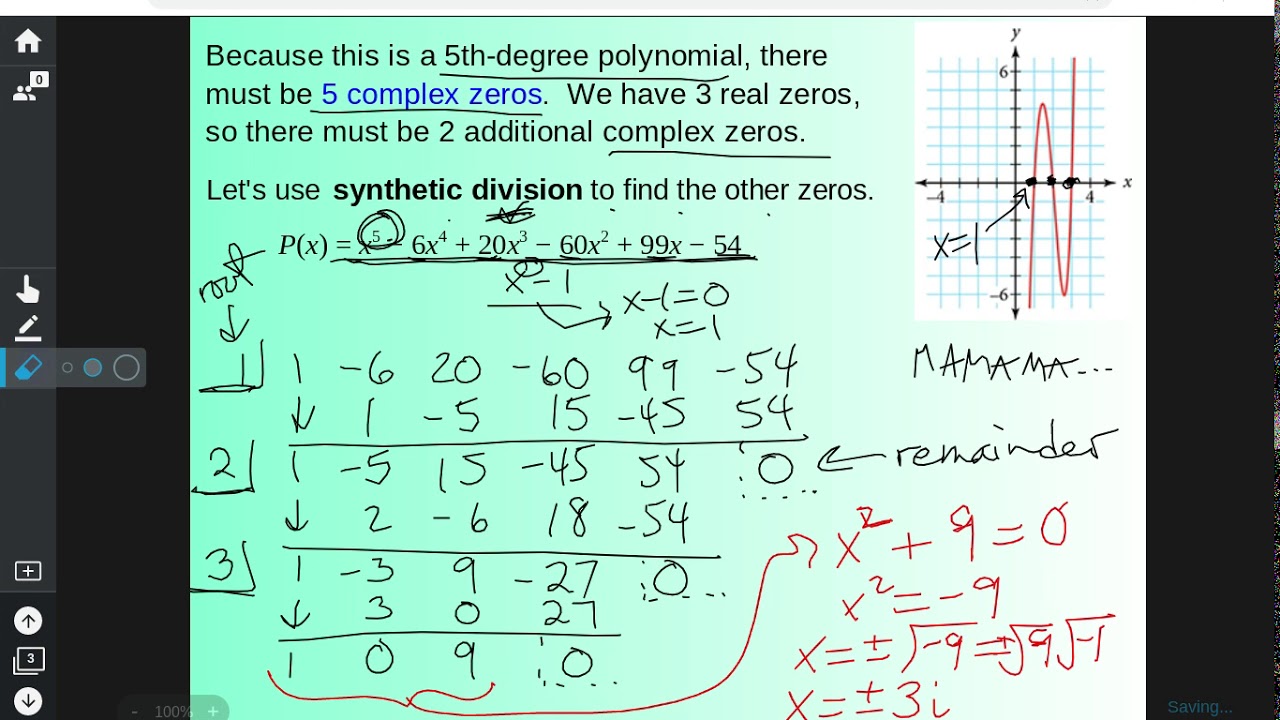 0
Because this is a 5th-degree polynomial, there
must be 5 complex zeros. We have 3 real zeros,
so there must be 2 additional complex zeros.
Let's use synthetic division to find the other zeros.
P(x) = x⁵ − 6x⁴ + 20x³ − 60x² + 99x − 54
y
6
-4
4
x
-6
x=1
root
x - 1
x-1=0
x=1
MAMAMA...
1 1 -6 20 -60 99 -54
↓ 1 -5 15 -45 54
2 1 -5 15 -45 54 0 ← remainder
↓ 2 -6 18 -54
3 1 -3 9 -27 0
↓ 3 0 27
1 0 9 0
x² + 9 = 0
x² = -9
x = ± √-9 = ±√9 √-1
x = ± 3i
3
- 100% +
Saving...